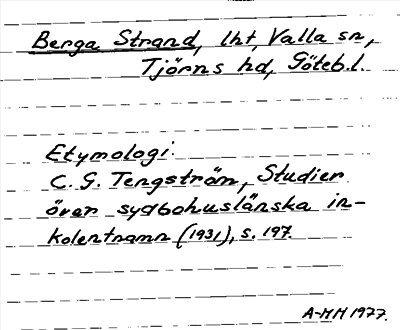 Berga Strand, lht, Valla sn,
Tjörns hd, Göteb.l.
Etymologi:
C. G. Tengström, Studier
över sydbohuslänska in-
kolentnamn (1931), s. 197.
A-MH 1977.